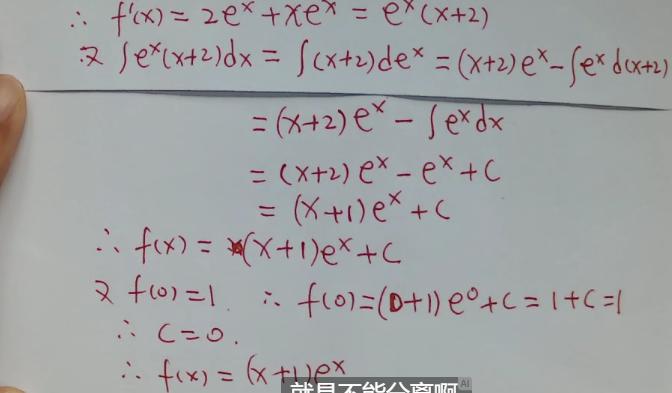 ∴ f'(x) = 2eˣ + xeˣ = eˣ(x+2)
又 ∫eˣ(x+2)dx = ∫(x+2)deˣ = (x+2)eˣ - ∫eˣ d(x+2)
= (x+2)eˣ - ∫eˣdx
= (x+2)eˣ - eˣ + C
= (x+1)eˣ + C
∴ f(x) = (x+1)eˣ + C
又 f(0)=1 ∴ f(0)=(0+1)e⁰+C = 1+C=1
∴ C=0.
∴ f(x) = (x+1)eˣ
就是不能分离啊
AI